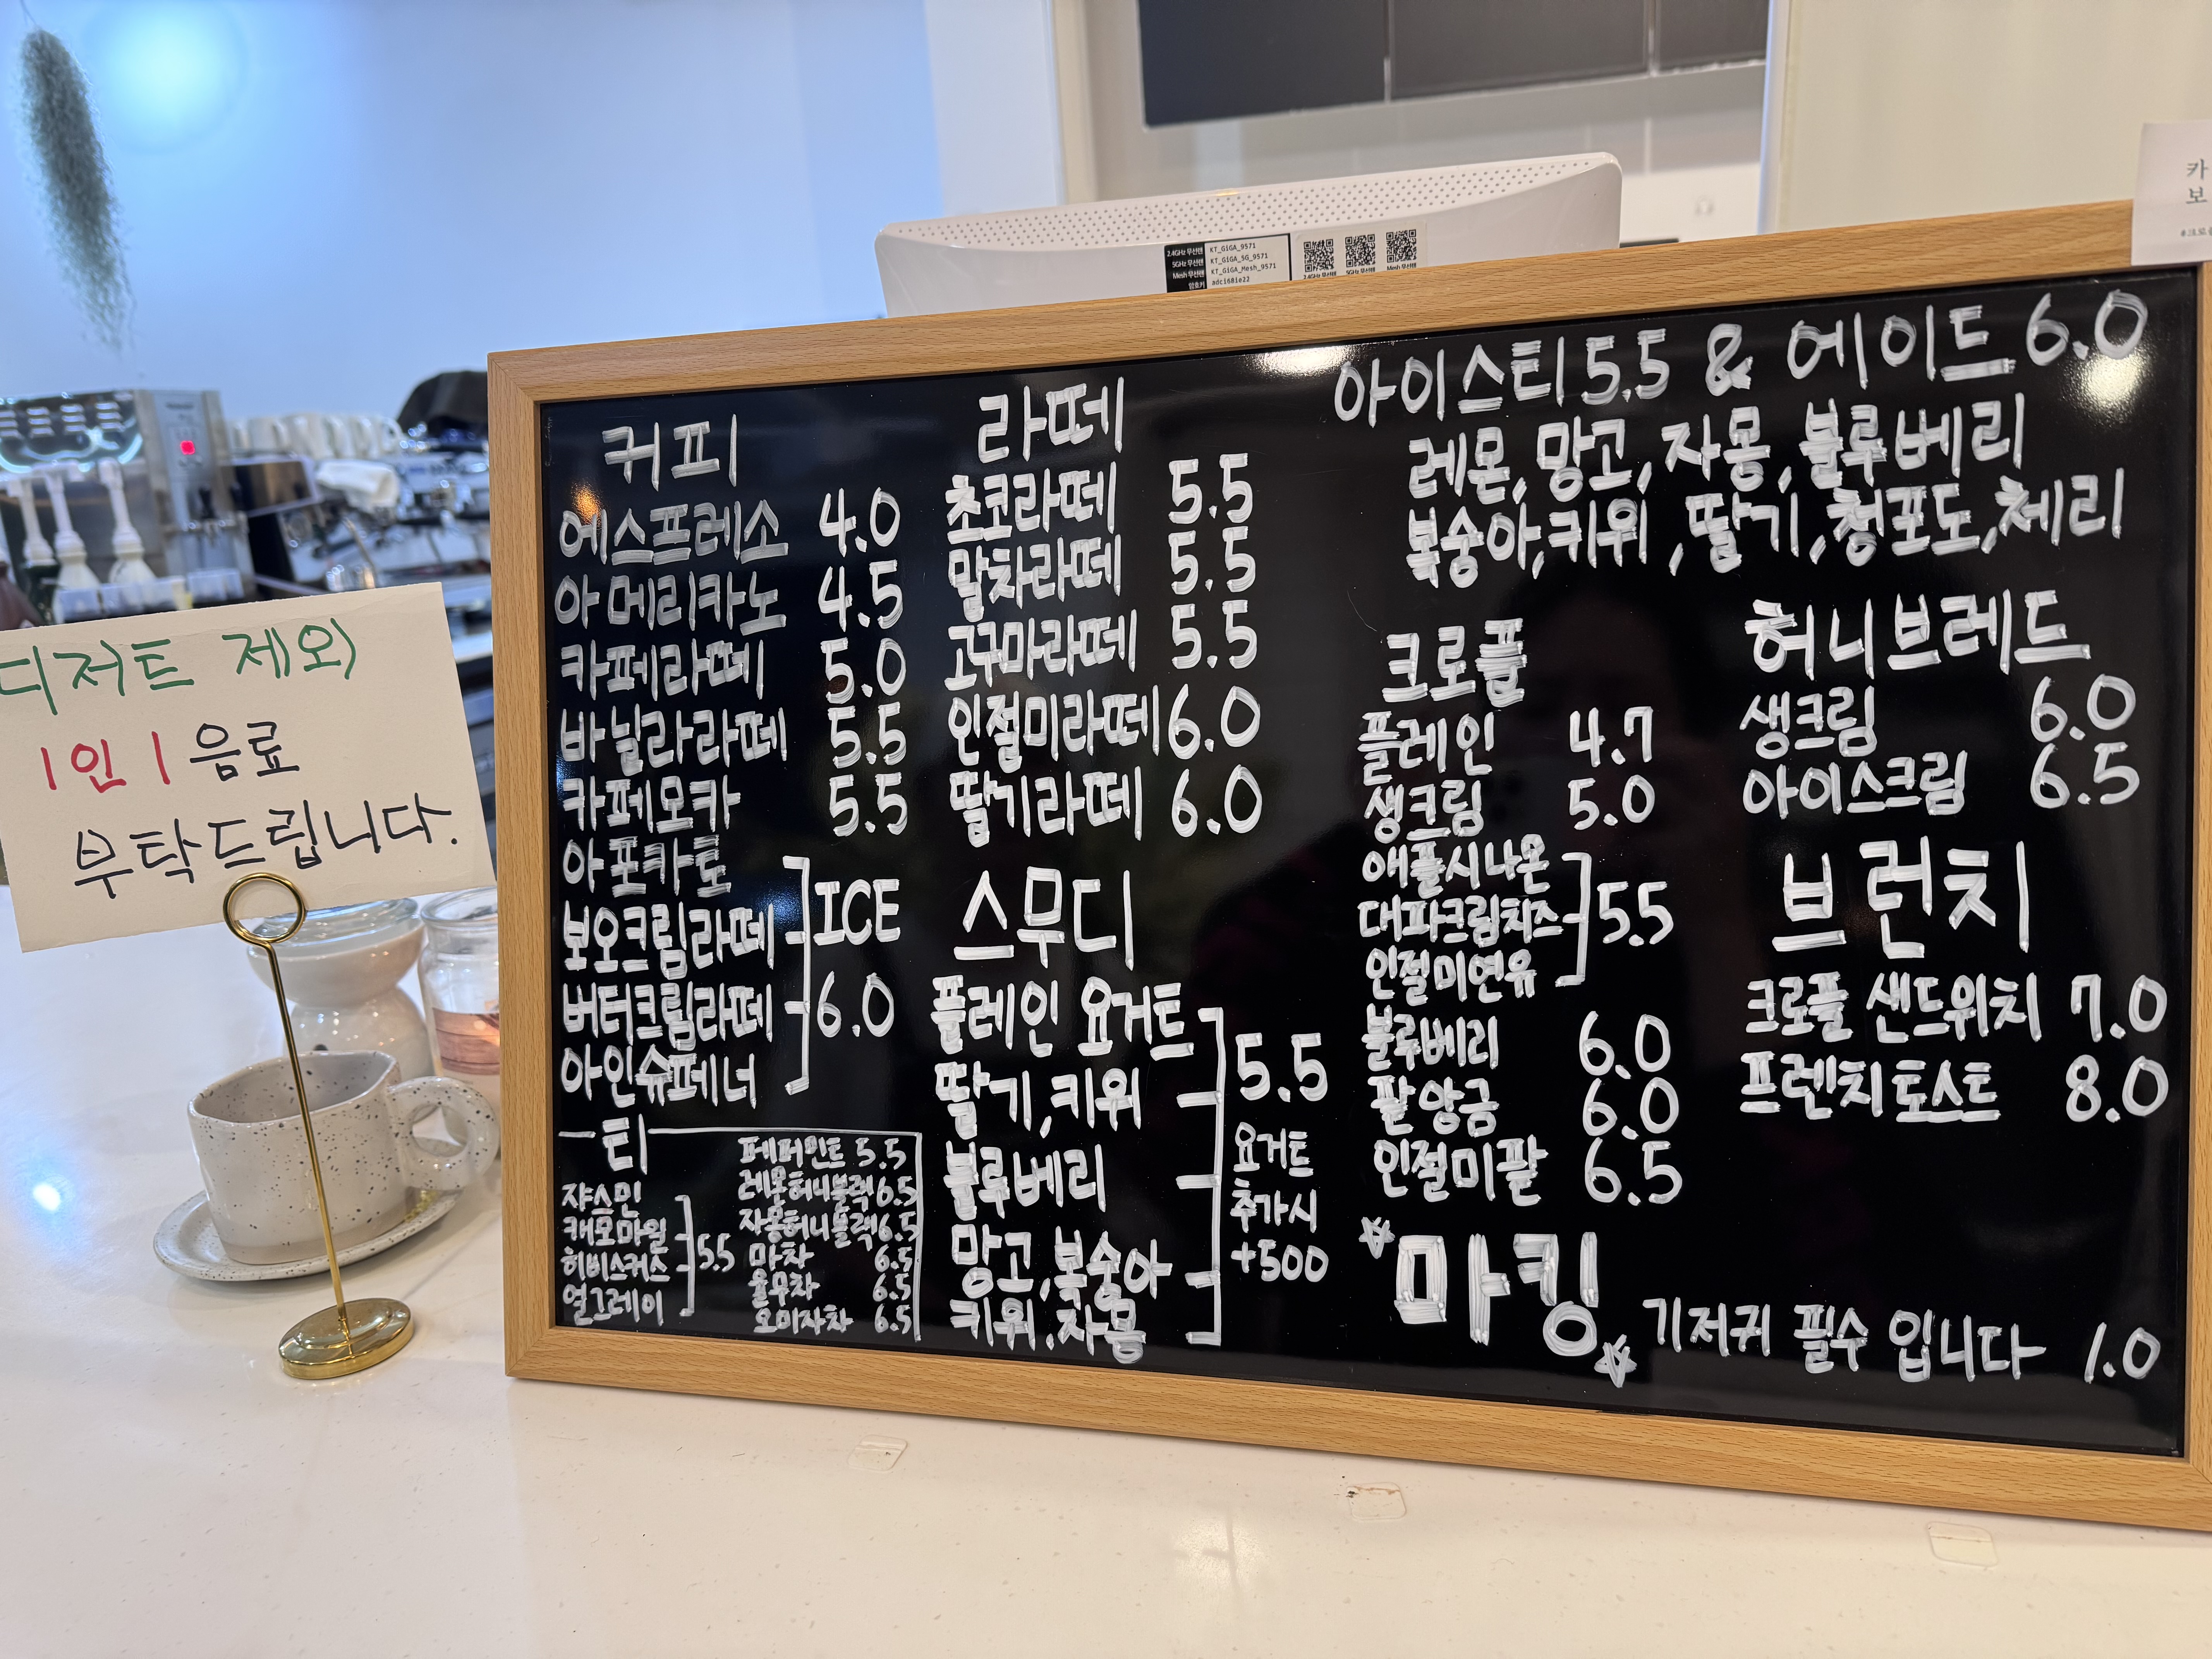 디저트 제외
1인 1 음료
부탁드립니다.
2.4GHz 무선랜 KT_GiGA_9571
5GHz 무선랜 KT_GiGA_5G_9571
Mesh 무선랜 KT_GiGA_Mesh_9571
암호키
2.4GHz 무선랜 5GHz 무선랜 Mesh 무선랜
카
보
커피
에스프레소 4.0
아메리카노 4.5
카페라떼 5.0
바닐라라떼 5.5
카페모카 5.5
아포카토
보오크림라떼
버터크림라떼
아인슈페너
ICE
6.0
티
쟈스민
캐모마일
히비스커스
얼그레이
5.5
페퍼민트 5.5
레몬허니블랙 6.5
자몽허니블랙 6.5
마차 6.5
율무차 6.5
오미자차 6.5
라떼
초코라떼 5.5
말차라떼 5.5
고구마라떼 5.5
인절미라떼 6.0
딸기라떼 6.0
스무디
플레인 요거트
딸기,키위
블루베리
망고,복숭아
키위,자몽
5.5
요거트
추가시
+500
아이스티 5.5 & 에이드 6.0
레몬,망고,자몽,블루베리
복숭아,키위,딸기,청포도,체리
크로플
플레인 4.7
생크림 5.0
애플시나몬
대파크림치즈
인절미연유
5.5
블루베리 6.0
팥앙금 6.0
인절미팥 6.5
허니브레드
생크림 6.0
아이스크림 6.5
브런치
크로플 샌드위치 7.0
프렌치토스트 8.0
마킹
기저귀 필수 입니다 1.0